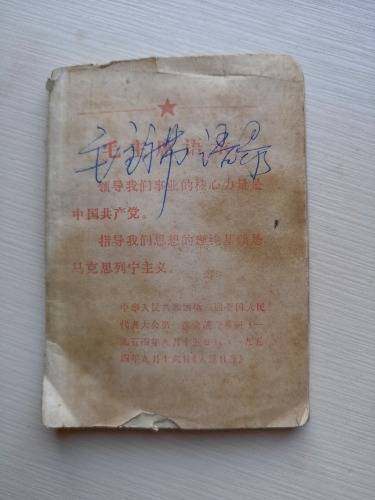 毛主席语录
毛主席语录
领导我们事业的核心力量是
中国共产党。
指导我们思想的理论基础是
马克思列宁主义。
中华人民共和国第一届全国人民
代表大会第一次会议开幕词(一
九五四年九月十五日),一九五
四年九月十六日《人民日报》